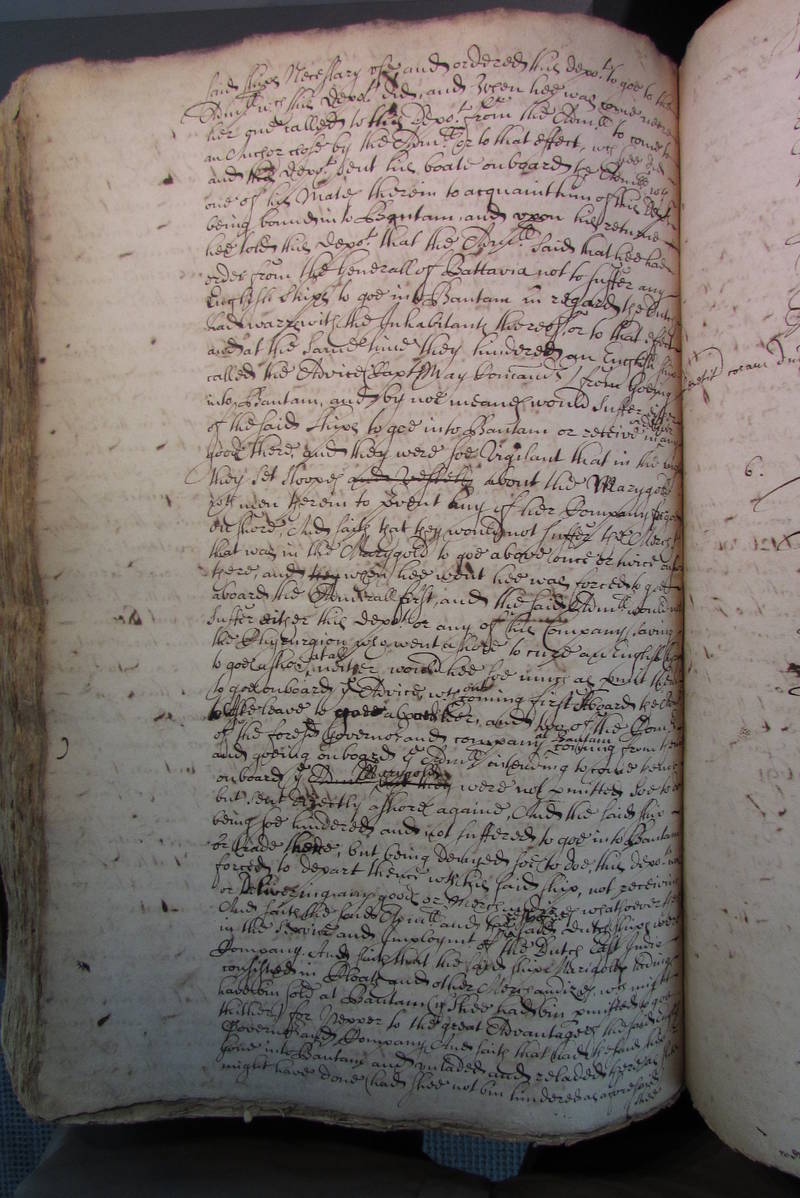 said shipps Necessary use and ordered this depot to goe to the
Admll wch this depot did, and when hee was come neere
her one called to this depot from the Admll to come to
an Anchor close by the Admll or to that effect, wch hee did
and this depot sent his boate onboard the Admll wth
one of his Mates therein to acquaint him of this depots
being bound into Bantam, and upon his returne
hee told this depot that the Admll said that hee had
order from the Generall of Battavia not to suffer any
English shipps to goe into Bantam in regard the Dutch
had warr with the Inhabitants thereof or to that effect
and at the same time they hindered an English shipp
called the Advice (Capt May Comandr) from goeing
into Bantam, and by noe meanes would suffer either
of the said shipps to goe into Bantam or receive in any
goods there, and they were soe Vigilant that in the night
they set sloopes and vessells about the Marygold
wth men therein to pvent any of her Company to goe
on shore, And saith that they would not suffer the Mercht
that was in the Marygold to goe above once or twice
there, and they when hee went hee was forced to goe
aboard the Admirall first, and the said Admll would not
suffer either this depot or any of his Company saving
the Chyrurgion who went ashore to cure an English
to goe ashore at all, neither would hee soe much as pmit them
to goe onboard ye Advice wthout coming first aboard the
leave to goe aboard her, and two of the
of the foresd Governor and company at Bantam coming from
and goeing onboard ye Admll intending to come thence
onboard ye Admll Marygold were not pmitted soe to
but sent directly ashore againe, And the said shipp
being soe hindered and not suffered to goe into Bantam
or trade there, but being denyed soe to doe, this depot was
forced to depart thence wth his said shipp, not receiving
or delivering any goods or Merchandizes whatsoever there
And saith the said Admll and the said Dutch shipps were
in the service and Imploymt of the Dutch East India
Company. And saith that the said shipps Marigolds lading
consisted in Cloath and other Merchandizes, wch might
have bin sold at Bantam (if shee had bin pmitted to goe
thither) for Pepper to the great Advantage of the said
Governor and Company, And saith that had the said shipp
gone into Bantam and unladed and reladed there as shee
might have done (had shee not bin hindered as aforesaid)
shee